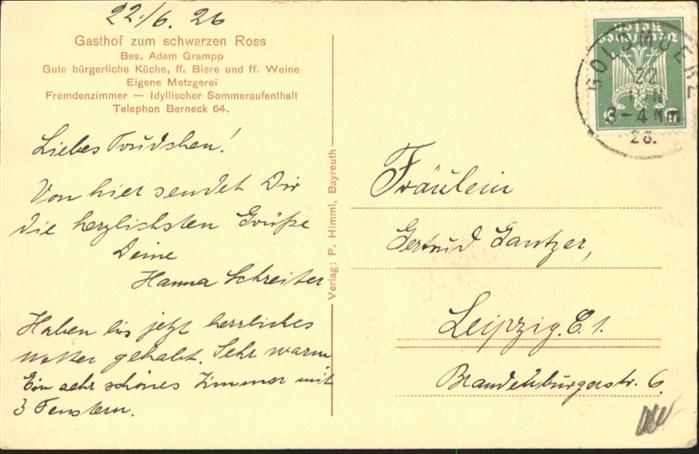 22./6. 26
Gasthof zum schwarzen Ross
Bes. Adam Grampp
Gute bürgerliche Küche, ff. Biere und ff. Weine
Eigene Metzgerei
Fremdenzimmer — Idyllischer Sommeraufenthalt
Telephon Berneck 64.
Liebes Trudchen!
Von hier sendet Dir
die herzlichsten Grüße
Deine
Hanna Schreiter
Haben bis jetzt herrliches
Wetter gehabt. Sehr warm
Ein sehr schönes Zimmer mit
3 Fenstern.
Verlag: P. Himml, Bayreuth
GOLDMÜHL
22
3-4 Nm
26.
Fräulein
Gertrud Gantzer,
Leipzig. C. 1.
Brandenburgerstr. 6.